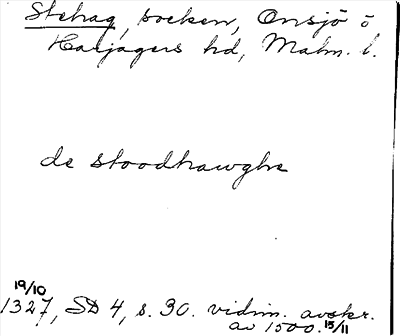 Stehag, socken, Onsjö o
Harjagers hd, Malm. l.
de stoodhawghe
19/10
1327, SD 4, s. 30. vidim. avskr.
av 1500. 15/11